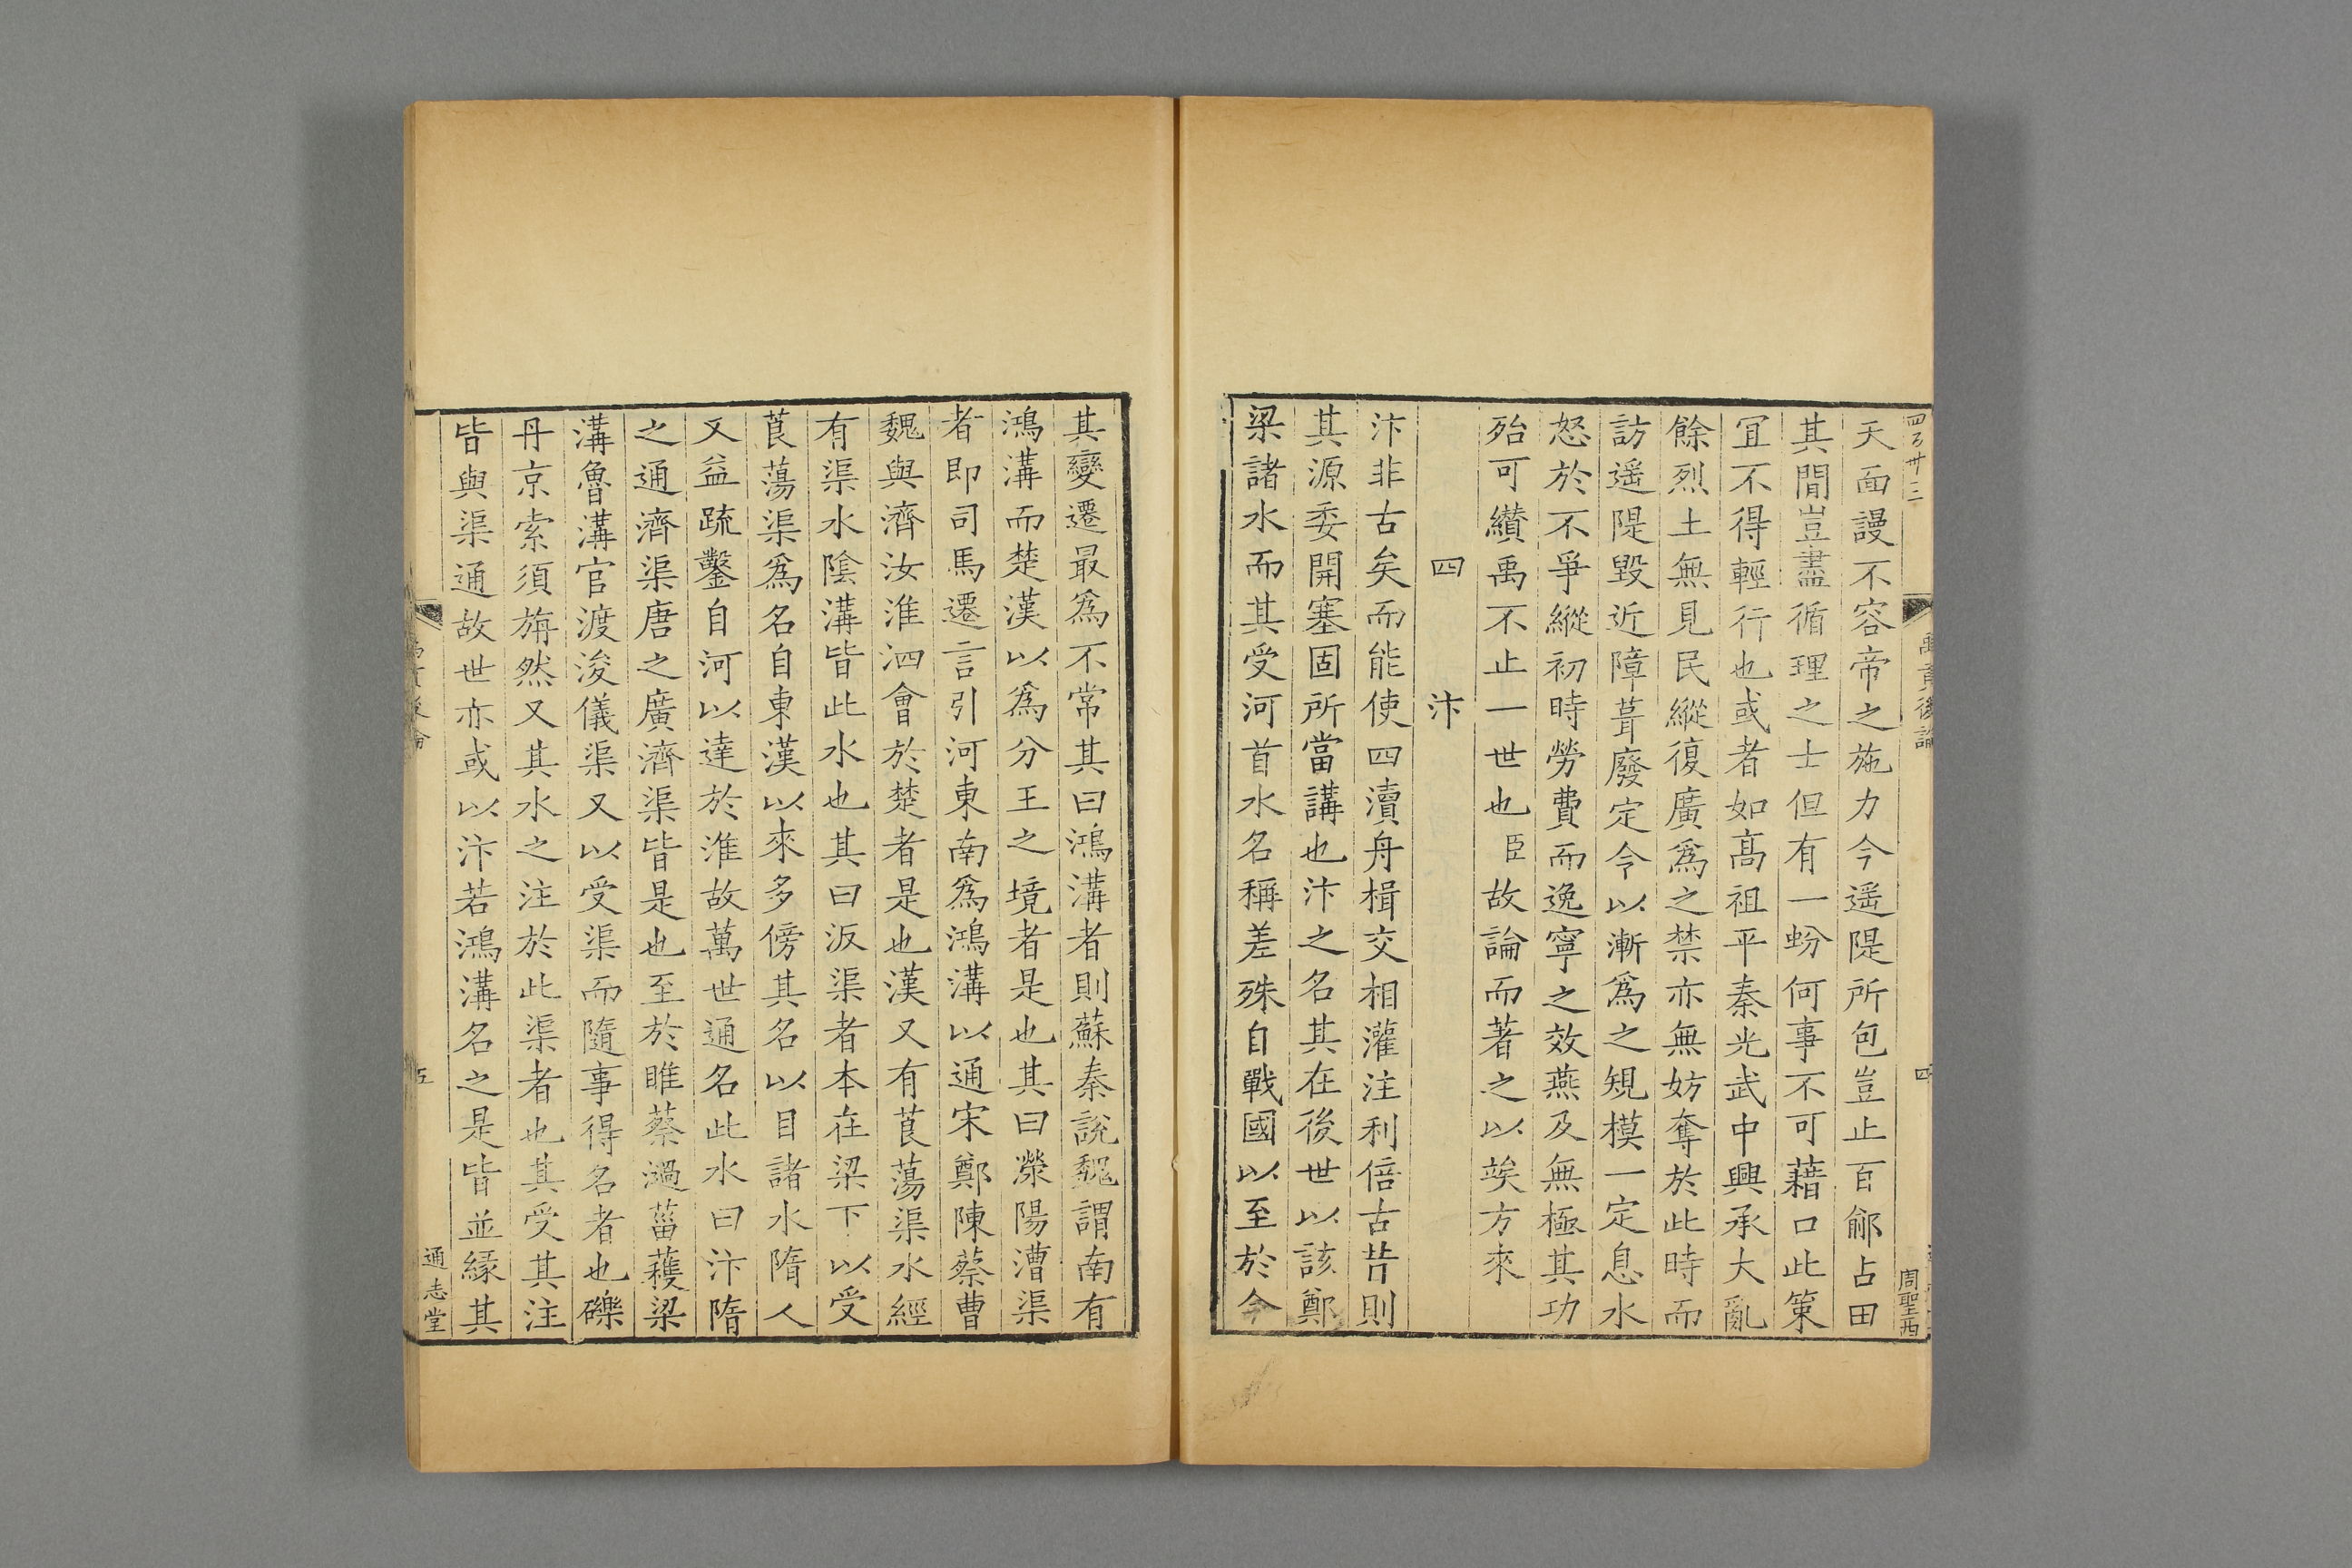 天面謾不容帝之施力今遥隄所包豈止百鄃占田
其間豈盡循理之士但有一蚡何事不可藉口此策
冝不得輕行也或者如髙祖平秦光武中興承大亂
餘烈土無見民縱復廣爲之禁亦無妨奪於此時而
訪遥隄毀近障葺廢定令以漸爲之䂓模一定息水
怒於不爭縱初時勞費而逸寧之效燕及無極其功
殆可纘禹不止一世也臣故論而著之以竢方來
四　汴
汴非古矣而能使四瀆舟楫交相灌注利倍古昔則
其源委開塞固所當講也汴之名其在後世以該鄭
梁諸水而其受河首水名稱差殊自戰國以至於今
四百廿三
禹貢後論
四
周聖西
其變遷最爲不常其曰鴻溝者則蘇秦說魏謂南有
鴻溝而楚漢以爲分王之境者是也其曰滎陽漕渠
者即司馬遷言引河東南爲鴻溝以通宋鄭陳蔡曹
魏與濟汝淮泗會於楚者是也漢又有莨蕩渠水經
有渠水陰溝皆此水也其曰汳渠者本在梁下以受
莨蕩渠爲名自東漢以來多傍其名以目諸水隋人
又益疏鑿自河以達於淮故萬世通名此水曰汴隋
之通濟渠唐之廣濟渠皆是也至於睢蔡濄菑蒦梁
溝魯溝官渡浚儀渠又以受渠而隨事得名者也礫
丹京索須旃然又其水之注於此渠者也其受其注
皆與渠通故世亦或以汴若鴻溝名之是皆並縁其
禹貢後論
五
通志堂